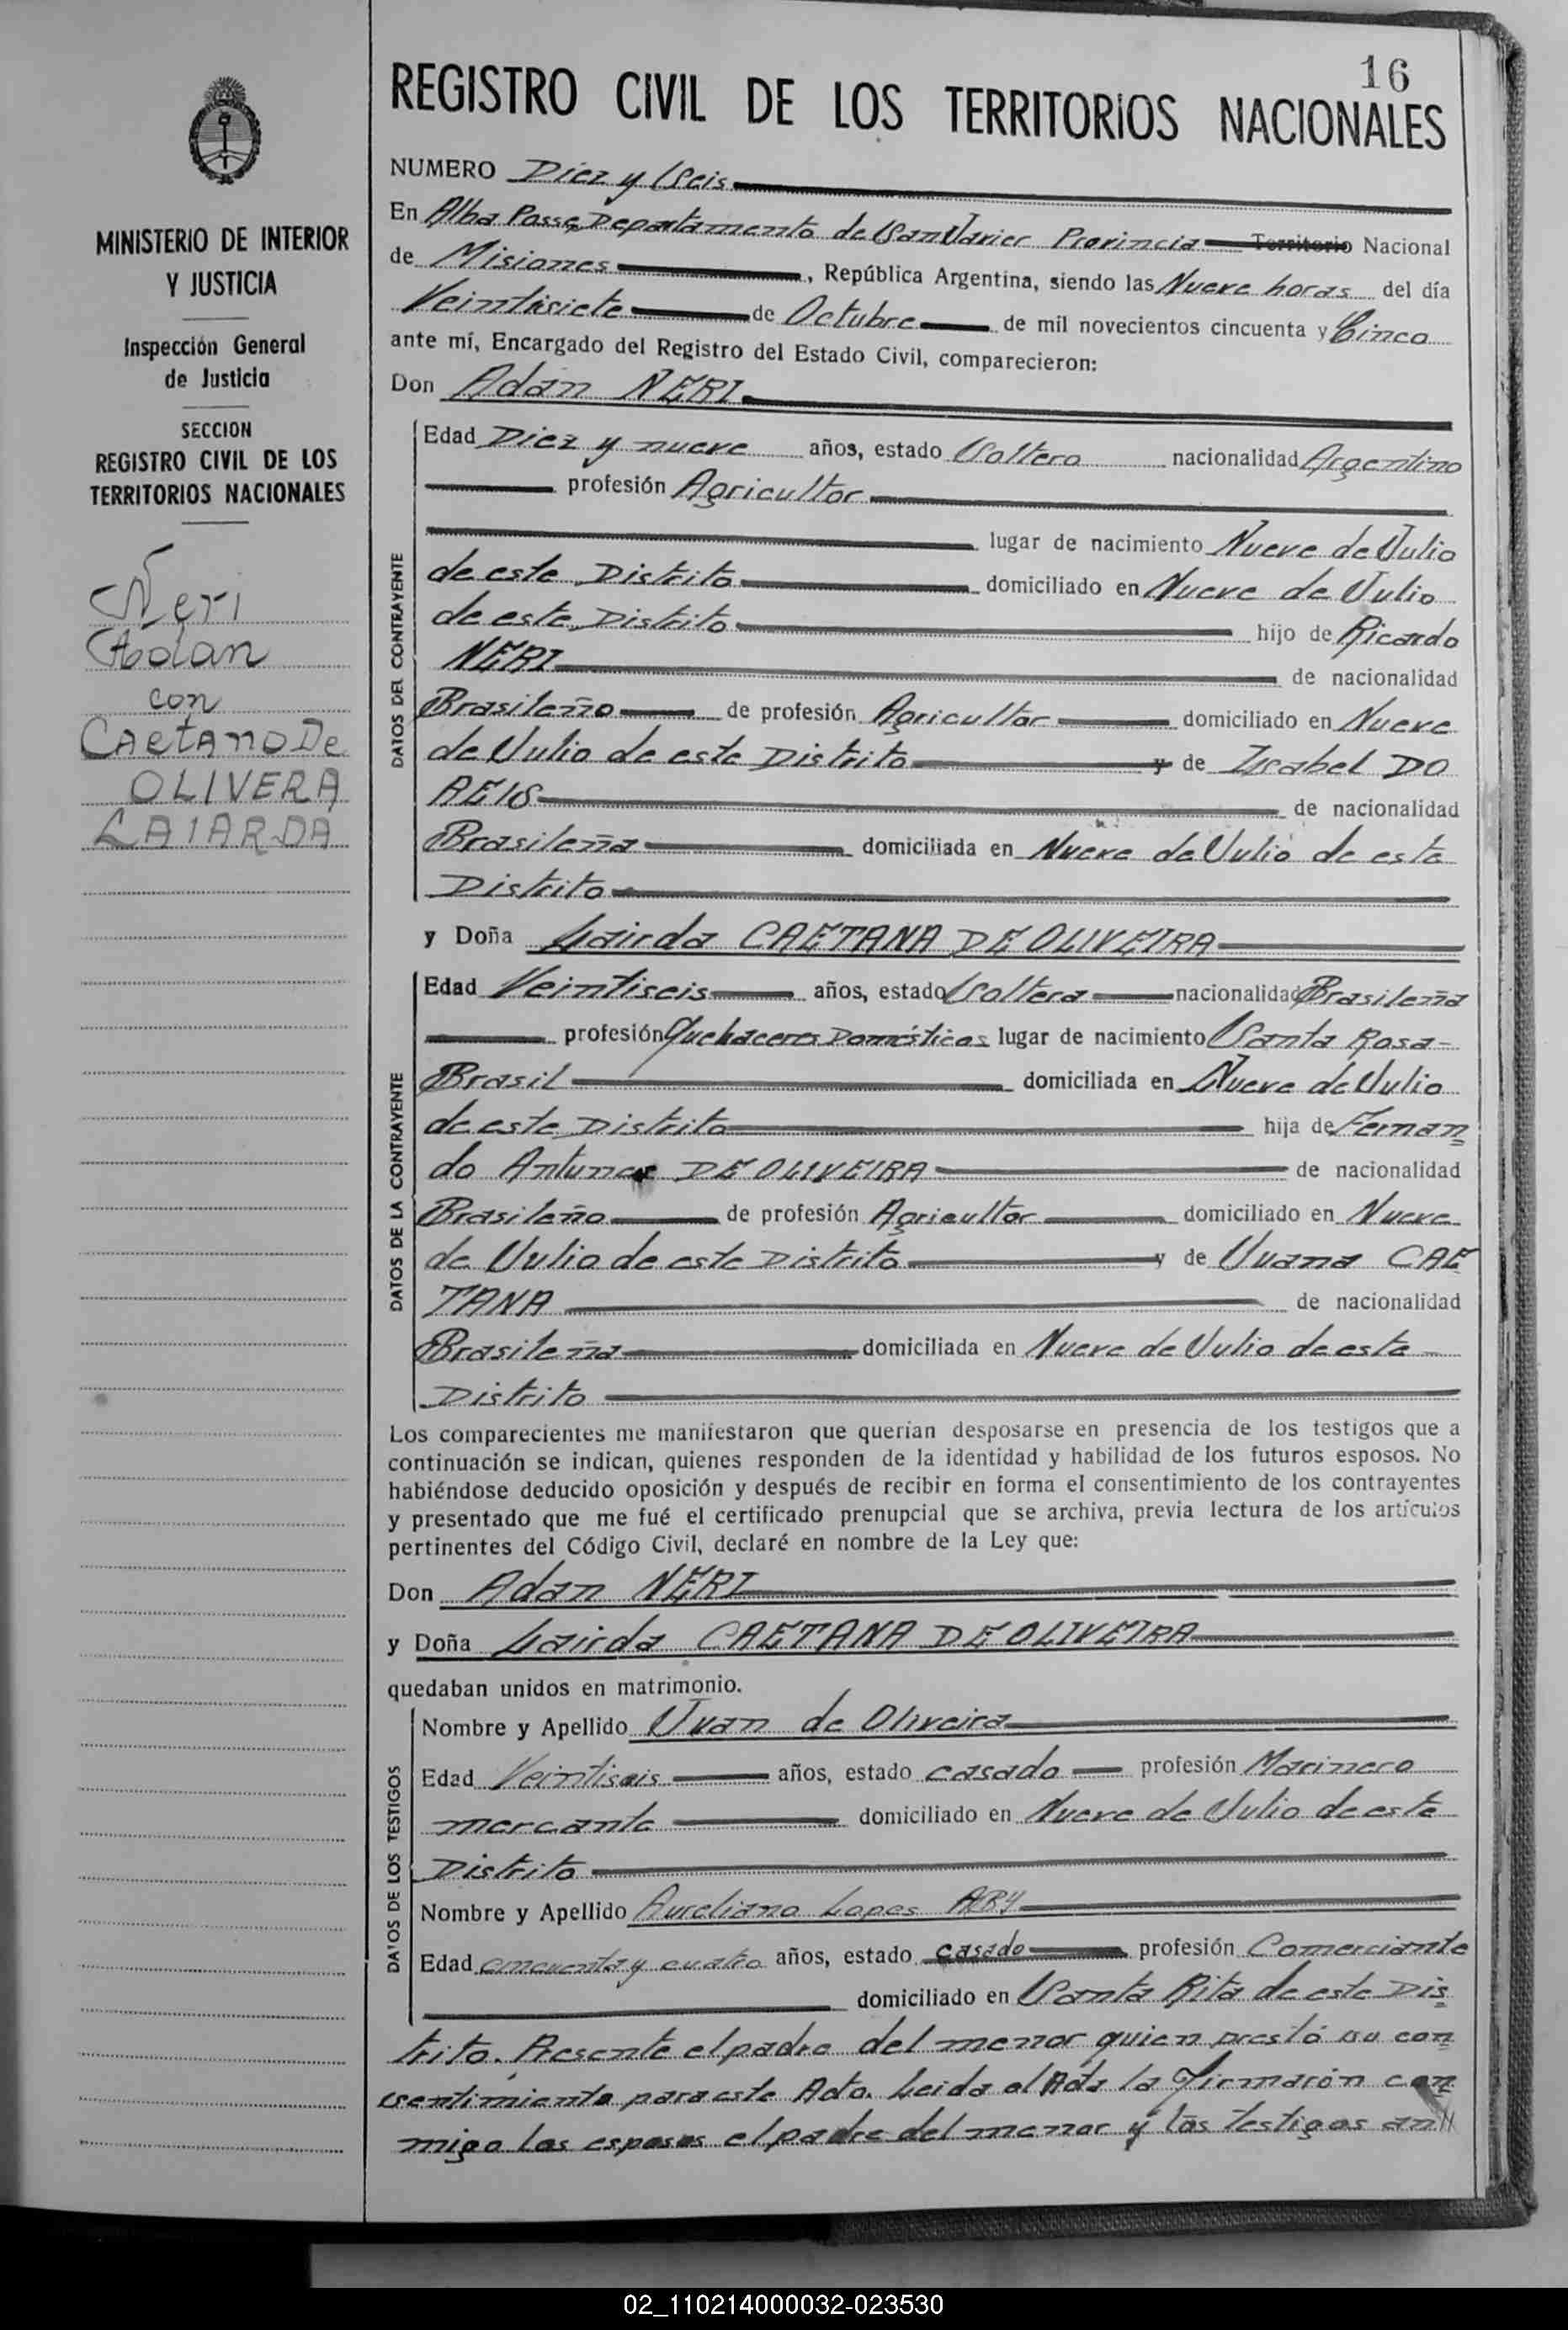 16
REGISTRO CIVIL DE LOS TERRITORIOS NACIONALES
MINISTERIO DE INTERIOR
Y JUSTICIA
Inspección General
de Justicia
SECCION
REGISTRO CIVIL DE LOS
TERRITORIOS NACIONALES
Neri
Adan
con
CAETANO De
OLIVERA
LAIARDA
NUMERO Diez y Seis
En Alba Posse, Departamento de San Javier Provincia Territorio Nacional
de Misiones, República Argentina, siendo las Nueve horas del día
Veintisiete de Octubre de mil novecientos cincuenta y Cinco
ante mí, Encargado del Registro del Estado Civil, comparecieron:
Don Adan NERI
DATOS DEL CONTRAYENTE
Edad Diez y nueve años, estado Soltero nacionalidad Argentino
profesión Agricultor
lugar de nacimiento Nueve de Julio
de este Distrito domiciliado en Nueve de Julio
de este Distrito hijo de Ricardo
NERI de nacionalidad
Brasileño de profesión Agricultor domiciliado en Nueve
de Julio de este Distrito y de Isabel DO
REIS de nacionalidad
Brasileña domiciliada en Nueve de Julio de este
Distrito
y Doña Lairda CAETANA DE OLIVEIRA
DATOS DE LA CONTRAYENTE
Edad Veintiseis años, estado Soltera nacionalidad Brasileña
profesión Quehaceres Domésticos lugar de nacimiento Santa Rosa-
Brasil domiciliada en Nueve de Julio
de este Distrito hija de Fernan
do Antunes DE OLIVEIRA de nacionalidad
Brasileño de profesión Agricultor domiciliado en Nueve
de Julio de este Distrito y de Juana CAE
TANA de nacionalidad
Brasileña domiciliada en Nueve de Julio de este
Distrito
Los comparecientes me manifestaron que querían desposarse en presencia de los testigos que a
continuación se indican, quienes responden de la identidad y habilidad de los futuros esposos. No
habiéndose deducido oposición y después de recibir en forma el consentimiento de los contrayentes
y presentado que me fué el certificado prenupcial que se archiva, previa lectura de los artículos
pertinentes del Código Civil, declaré en nombre de la Ley que:
Don Adan NERI
y Doña Lairda CAETANA DE OLIVEIRA
quedaban unidos en matrimonio.
DATOS DE LOS TESTIGOS
Nombre y Apellido Juan de Oliveira
Edad Veintiseis años, estado casado profesión Marinero
mercante domiciliado en Nueve de Julio de este
Distrito
Nombre y Apellido Aureliano Lopes ARY
Edad cincuenta y cuatro años, estado casado profesión Comerciante
domiciliado en Santa Rita de este Dis
trito. Presente el padre del menor quien prestó su con
sentimiento para este Acto. Leida el Acta la firmaron con
migo los esposos el padre del menor y los testigos an
02_110214000032-023530